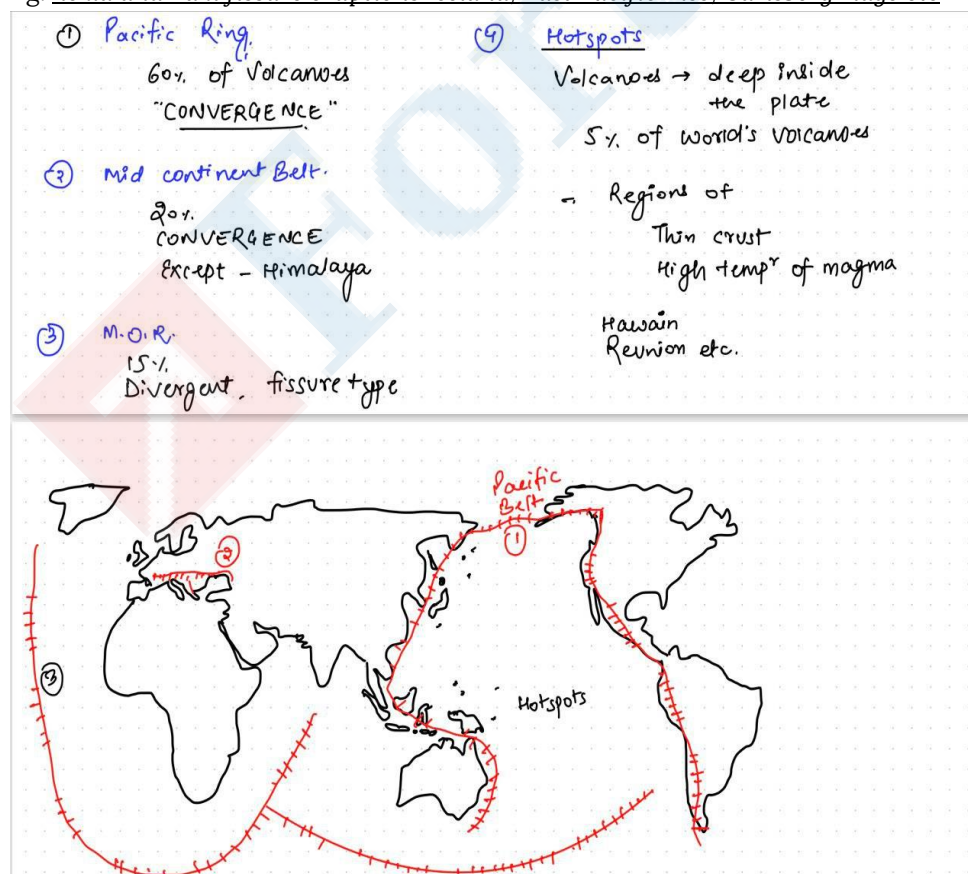 ① Pacific Ring.
60% of Volcanoes
"CONVERGENCE"
② Mid continent Belt.
20%
CONVERGENCE
Except - Himalaya
③ M.O.R.
15%
Divergent, fissure type
④ Hotspots
Volcanoes → deep inside
the plate
5% of world's volcanoes
- Regions of
Thin crust
High tempr of magma
Hawain
Reunion etc.
Pacific
Belt
①
②
③
Hotspots